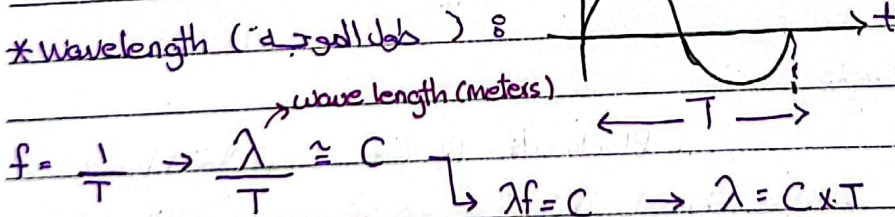 * Wavelength (طول الموجة) :
t
wave length (meters)
T
f = 1/T → λ/T ≅ C
↳ λf = C → λ = C x T